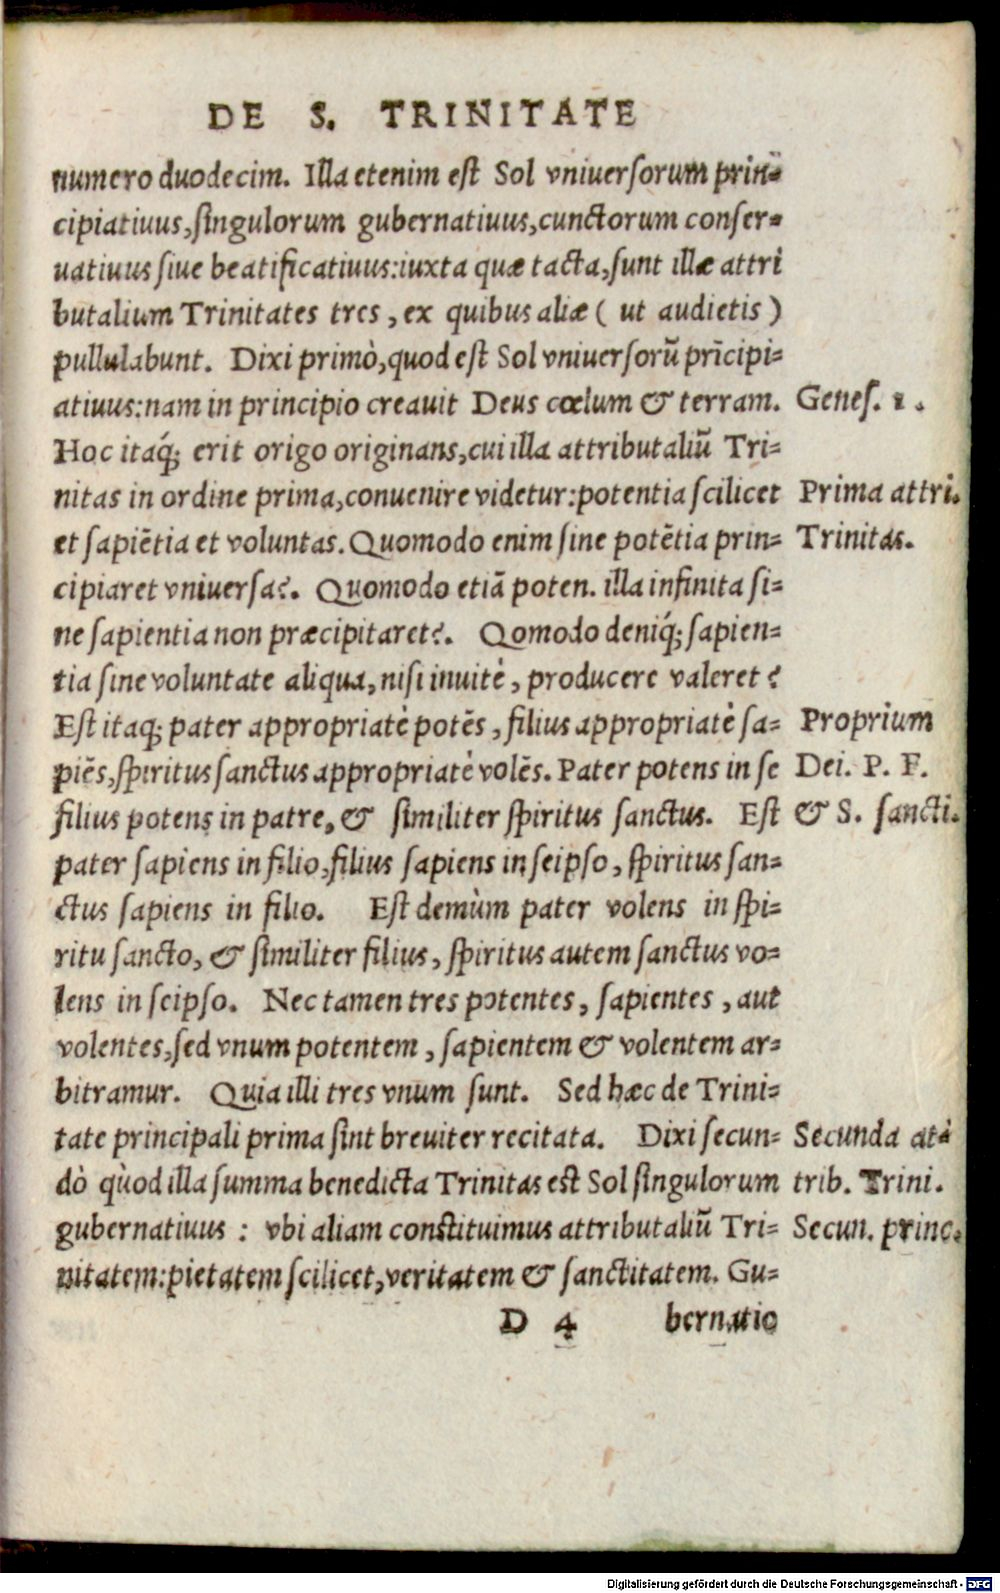 DE S. TRINITATE
numero duodecim. Illa etenim est Sol vniuersorum prin-
cipiatiuus, singulorum gubernatiuus, cunctorum conser-
uatiuus siue beatificatiuus: iuxta quæ tacta, sunt illæ attri
butalium Trinitates tres, ex quibus aliæ ( ut audietis )
pullulabunt. Dixi primò, quod est Sol vniuersorũ prĩcipi-
atiuus: nam in principio creauit Deus cœlum & terram. Genes. 1.
Hoc itaq́; erit origo originans, cui illa attributaliũ Tri-
nitas in ordine prima, conuenire videtur: potentia scilicet Prima attri.
et sapiẽtia et voluntas. Quomodo enim sine potẽtia prin- Trinitas.
cipiaret vniuersa?. Quomodo etiã poten. illa infinita si-
ne sapientia non præcipitaret?. Qomodo deniq́; sapien-
tia sine voluntate aliqua, nisi inuitè, producere valeret?
Est itaq; pater appropriatè potẽs, filius appropriatè sa- Proprium
piẽs, spiritus sanctus appropriatè volẽs. Pater potens in se Dei. P. F.
filius potens in patre, & similiter spiritus sanctus. Est & S. sancti.
pater sapiens in filio, filius sapiens in seipso, spiritus san-
ctus sapiens in filio. Est demùm pater volens in spi-
ritu sancto, & similiter filius, spiritus autem sanctus vo-
lens in seipso. Nec tamen tres potentes, sapientes, aut
volentes, sed vnum potentem, sapientem & volentem ar-
bitramur. Quia illi tres vnum sunt. Sed hæc de Trini-
tate principali prima sint breuiter recitata. Dixi secun- Secunda at-
dò qùod illa summa benedicta Trinitas est Sol singulorum trib. Trini.
gubernatiuus : vbi aliam constituimus attributaliũ Tri- Secun. princ.
nitatem: pietatem scilicet, veritatem & sanctitatem. Gu-
D 4 bernatio
Digitalisierung gefördert durch die Deutsche Forschungsgemeinschaft - DFG